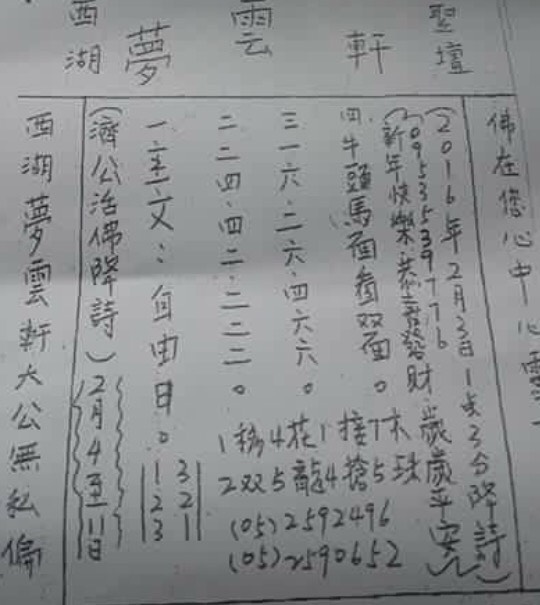 西湖夢雲軒聖壇
西湖夢雲軒大公無私偏
(濟公活佛降詩)(2月4至11日)
一主文:自由日。
1 3
2 2
3 1
二二四.四二.二二二。
三一六.二六.四六六。
四.牛頭馬面看双面。
1移4花1接7木
2双5龍4搶5珠
(05)2592496
(05)2590652
(新年快樂恭喜發財歲歲平安)
0953539776
(2016年2月3日1点3分降詩)
佛在您心中心靈